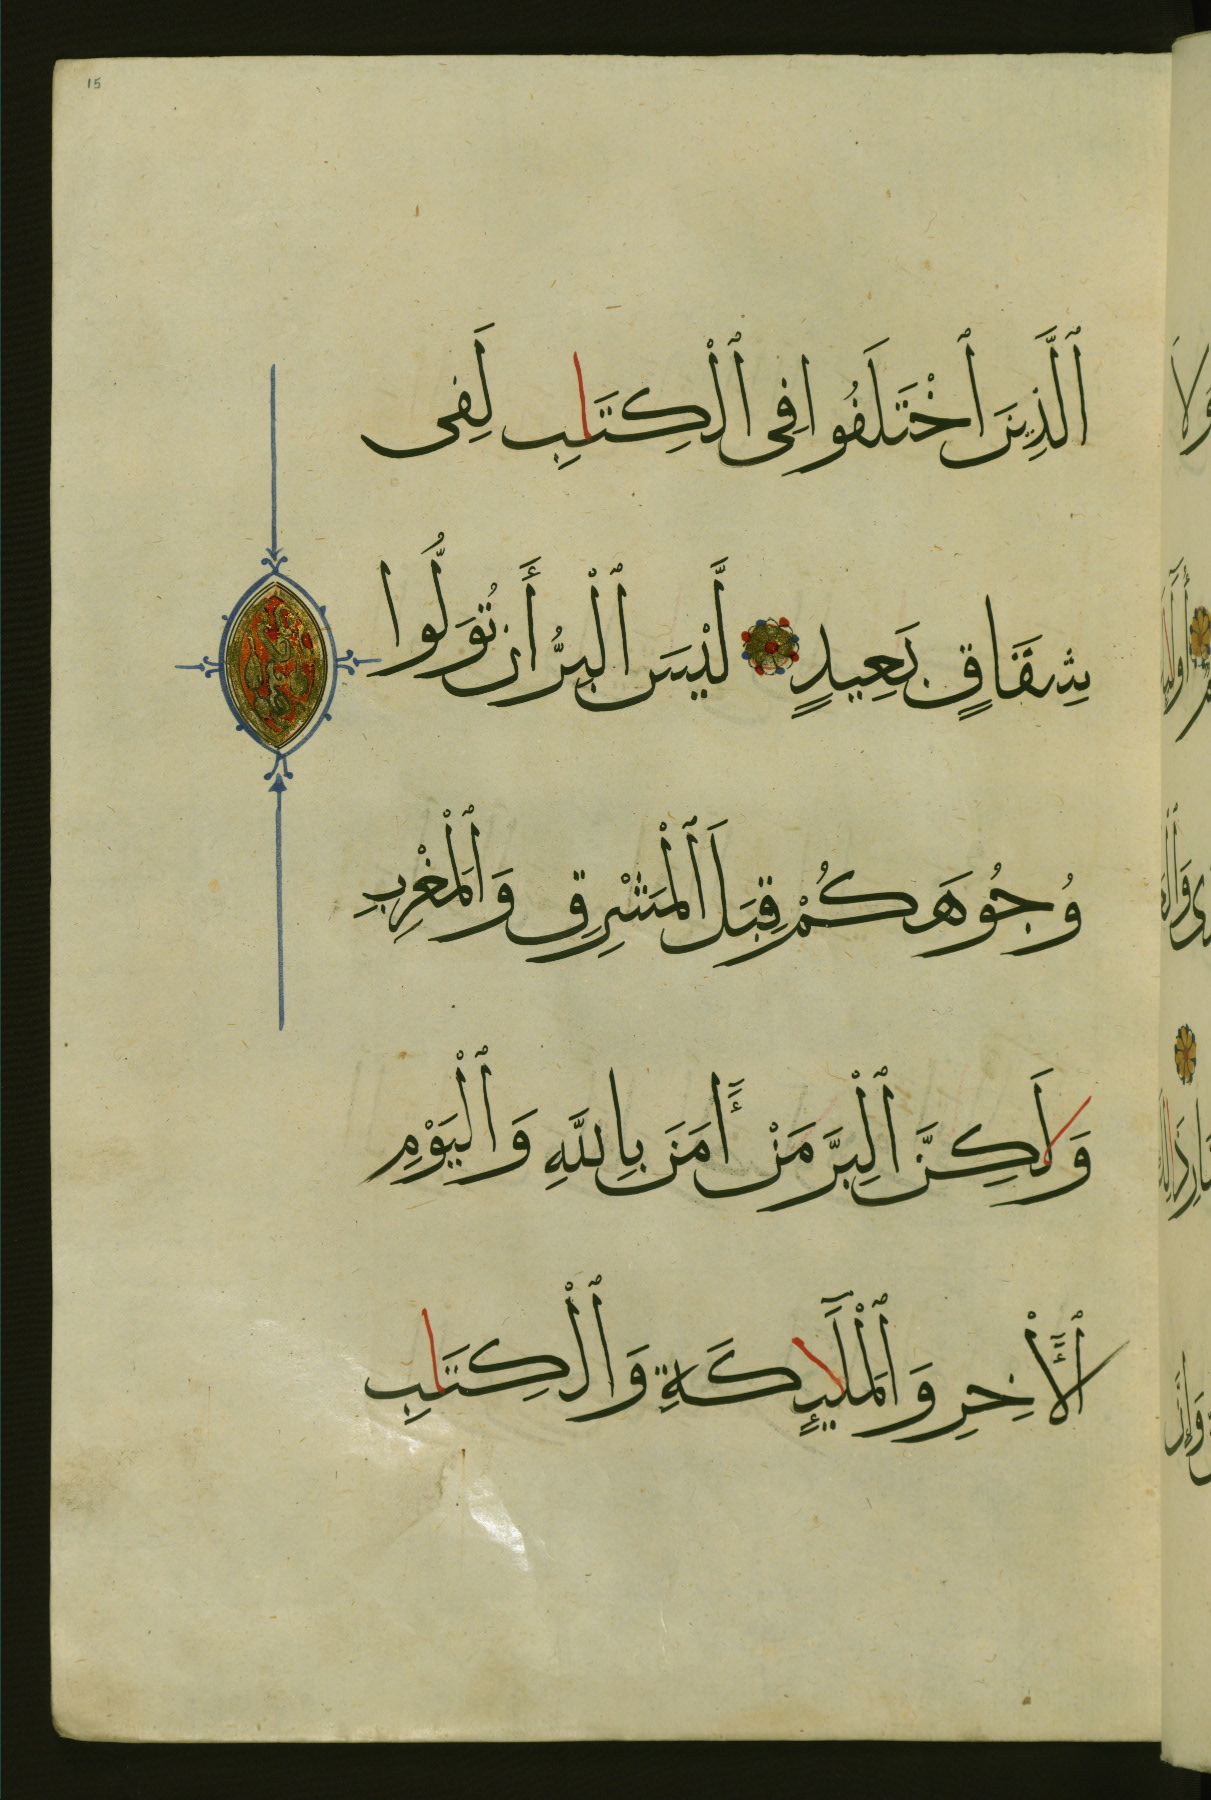 15
ٱلَّذِينَ ٱخْتَلَفُوا فِى ٱلْكِتَابِ لَفِى
شِقَاقٍ بَعِيدٍ لَّيْسَ ٱلْبِرُّ أَن تُوَلُّوا
وُجُوهَكُمْ قِبَلَ ٱلْمَشْرِقِ وَٱلْمَغْرِبِ
وَلَاكِنَّ ٱلْبِرَّ مَنْ ءَامَنَ بِاللَّهِ وَٱلْيَوْمِ
ٱلْأَخِرِ وَٱلْمَلَٰٓئِكَةِ وَٱلْكِتَابِ